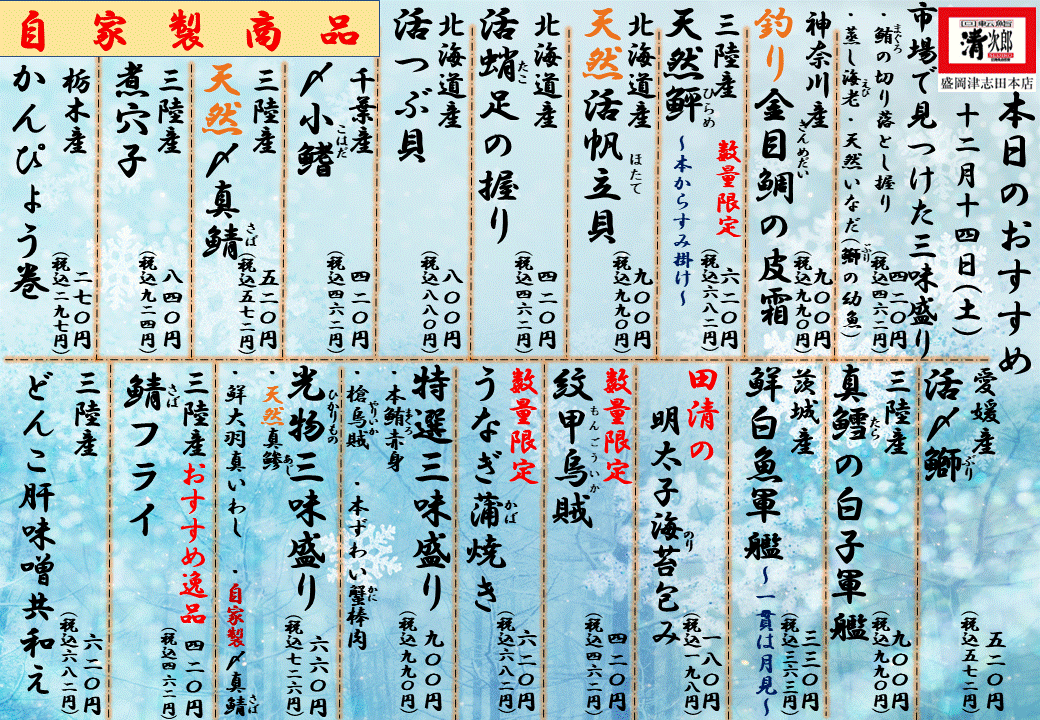 回転鮨
清次郎
盛岡津志田本店
本日のおすすめ
十二月十四日(土)
市場で見つけた三味盛り
・鮪の切り落とし握り
まぐろ
・蒸し海老・天然いなだ(鰤の幼魚)
えび
ぶり
四二〇円
(税込四六二円)
神奈川産
釣り金目鯛の皮霜
きんめだい
九〇〇円
(税込九九〇円)
三陸産
数量限定
天然鮃
ひらめ
~本からすみ掛け~
六二〇円
(税込六八二円)
北海道産
天然活帆立貝
ほたて
九〇〇円
(税込九九〇円)
北海道産
活蛸足の握り
たこ
四二〇円
(税込四六二円)
北海道産
活つぶ貝
八〇〇円
(税込八八〇円)
自家製商品
千葉産
〆小鰭
こはだ
四二〇円
(税込四六二円)
三陸産
天然〆真鯖
さば
五二〇円
(税込五七二円)
三陸産
煮穴子
八四〇円
(税込九二四円)
栃木産
かんぴょう巻
二七〇円
(税込二九七円)
愛媛産
活〆鰤
ぶり
五二〇円
(税込五七二円)
三陸産
真鱈の白子軍艦
たら
九〇〇円
(税込九九〇円)
茨城産
鮮白魚軍艦~一貫は月見~
三三〇円
(税込三六三円)
田清の
明太子海苔包み
のり
一八〇円
(税込一九八円)
数量限定
紋甲烏賊
もんごういか
四二〇円
(税込四六二円)
数量限定
うなぎ蒲焼き
かば
六二〇円
(税込六八二円)
特選三味盛り
・本鮪赤身
まぐろ
・本ずわい蟹棒肉
かに
・槍烏賊
やりいか
九〇〇円
(税込九九〇円)
光物三味盛り
ひかりもの
・天然真鯵
あじ
・鮮大羽真いわし
・自家製〆真鯖
さば
六六〇円
(税込七二六円)
三陸産おすすめ逸品
鯖フライ
さば
四二〇円
(税込四六二円)
三陸産
どんこ肝味噌共和え
六二〇円
(税込六八二円)